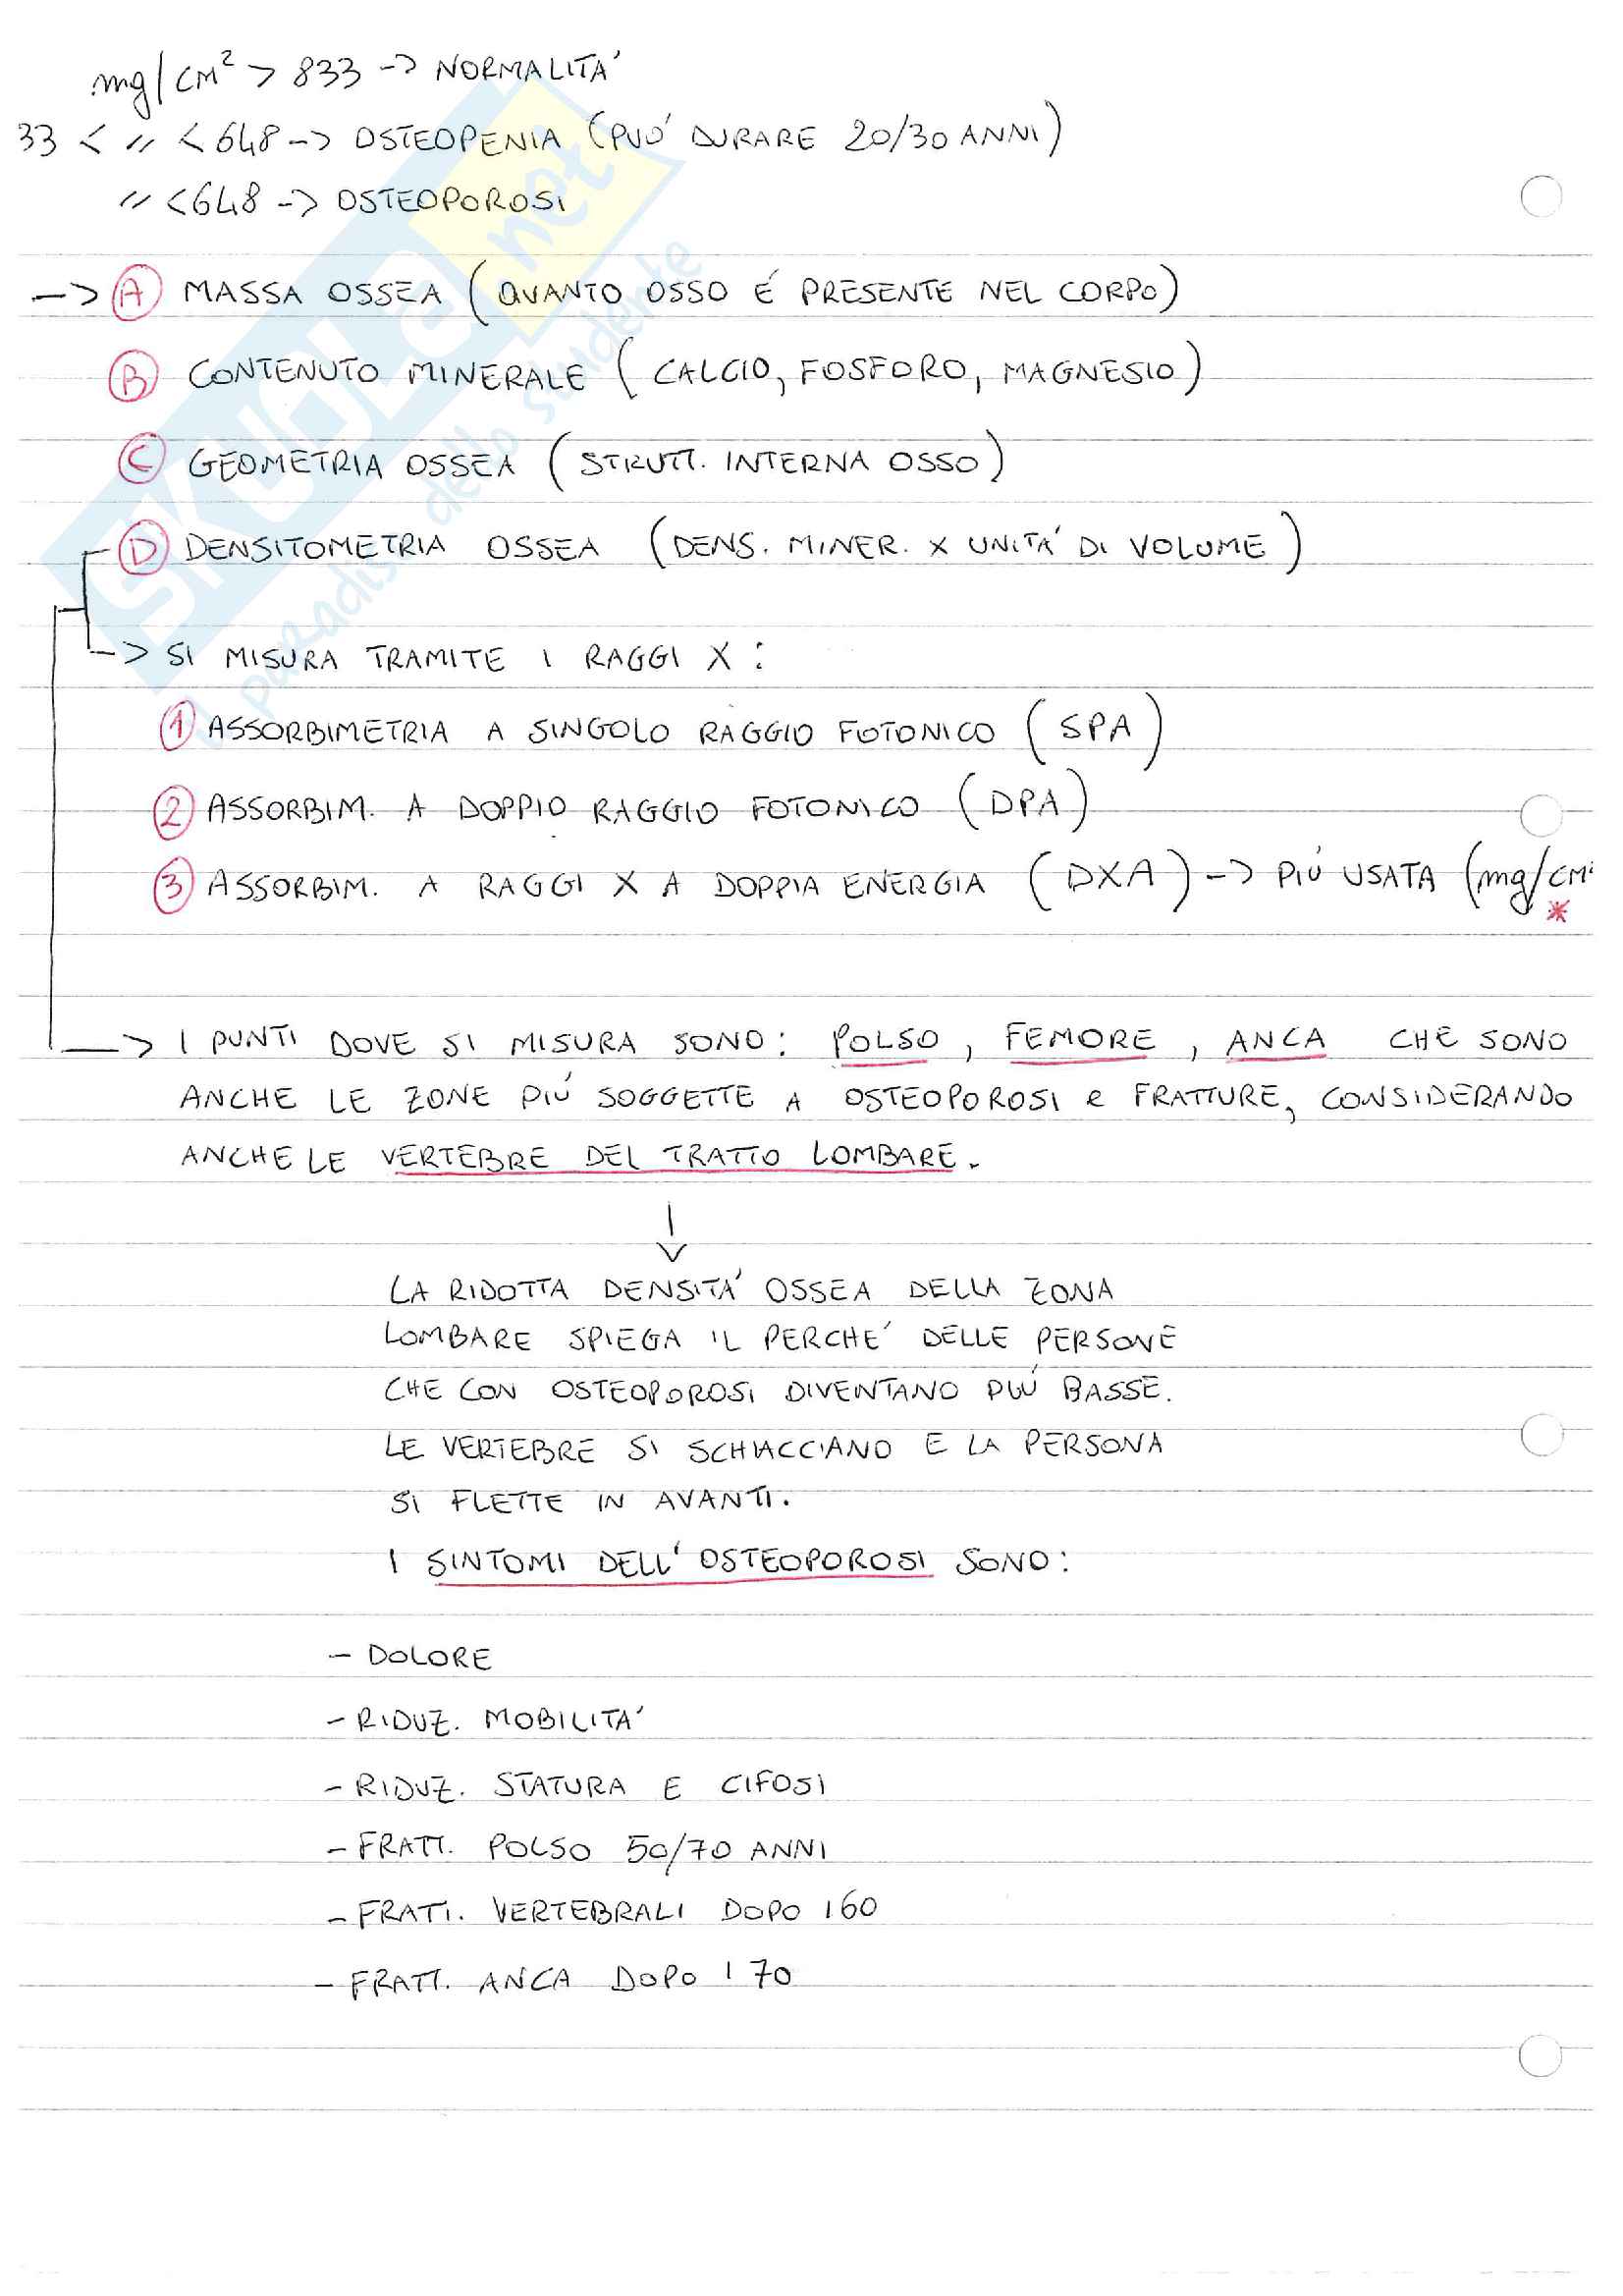 mg/CM² > 833 -> NORMALITA'
33 < // < 648 -> OSTEOPENIA (PUO' DURARE 20/30 ANNI)
// < 648 -> OSTEOPOROSI
-> A MASSA OSSEA (QUANTO OSSO É PRESENTE NEL CORPO)
B CONTENUTO MINERALE (CALCIO, FOSFORO, MAGNESIO)
C GEOMETRIA OSSEA (STRUTT. INTERNA OSSO)
D DENSITOMETRIA OSSEA (DENS. MINER. X UNITA' DI VOLUME)
-> SI MISURA TRAMITE I RAGGI X:
1 ASSORBIMETRIA A SINGOLO RAGGIO FOTONICO (SPA)
2 ASSORBIM. A DOPPIO RAGGIO FOTONICO (DPA)
3 ASSORBIM. A RAGGI X A DOPPIA ENERGIA (DXA) -> PIÚ USATA (mg/CM²
*
-> I PUNTI DOVE SI MISURA SONO: POLSO, FEMORE, ANCA CHE SONO
ANCHE LE ZONE PIÚ SOGGETTE A OSTEOPOROSI e FRATTURE, CONSIDERANDO
ANCHE LE VERTEBRE DEL TRATTO LOMBARE.
LA RIDOTTA DENSITA' OSSEA DELLA ZONA
LOMBARE SPIEGA IL PERCHE' DELLE PERSONE
CHE CON OSTEOPOROSI DIVENTANO PIÚ BASSE.
LE VERTEBRE SI SCHIACCIANO E LA PERSONA
SI FLETTE IN AVANTI.
I SINTOMI DELL'OSTEOPOROSI SONO:
- DOLORE
- RIDUZ. MOBILITA'
- RIDUZ. STATURA E CIFOSI
- FRATT. POLSO 50/70 ANNI
- FRATT. VERTEBRALI DOPO I 60
- FRATT. ANCA DOPO I 70
SKUOLA.net
il paradiso dello studente